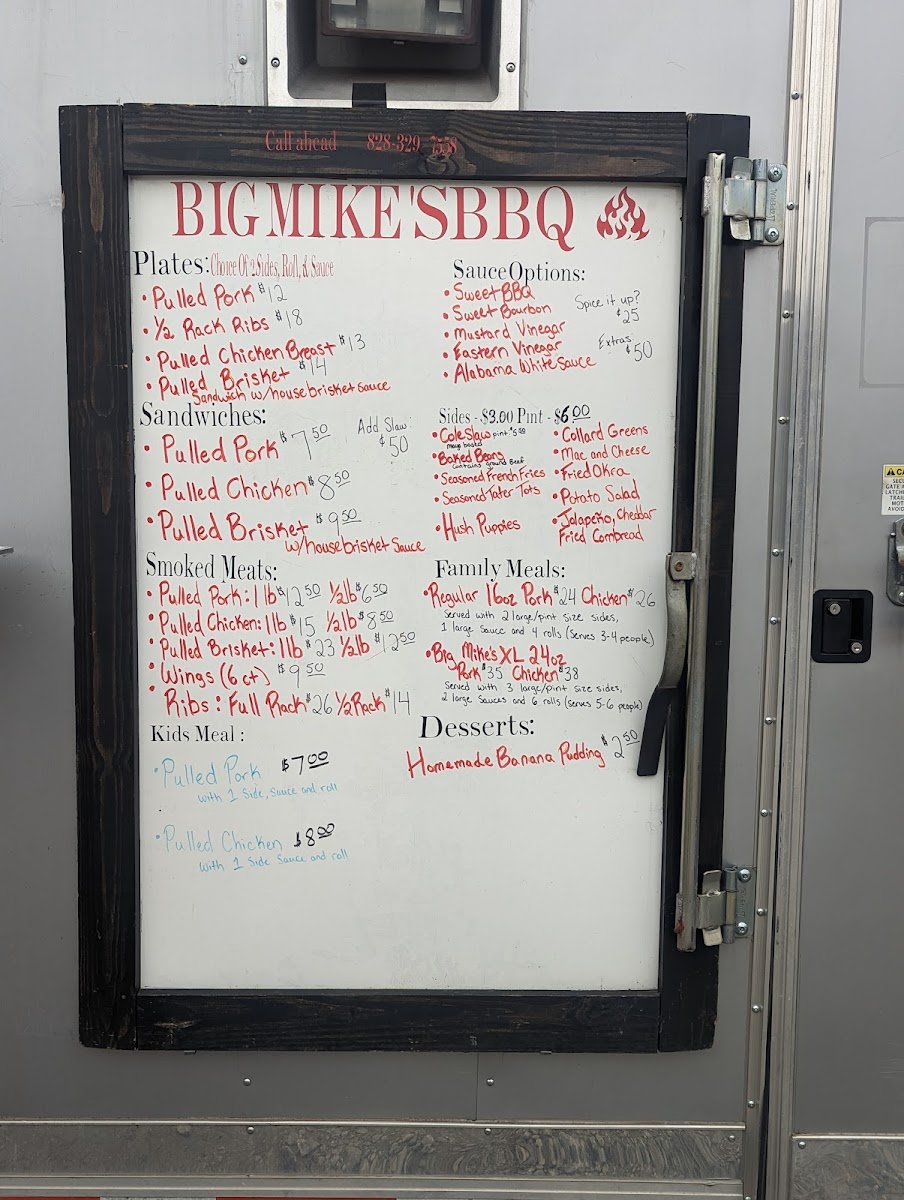 Call ahead 828-329-7558
BIG MIKE'S BBQ
Plates: Choice Of 2 Sides, Roll, & Sauce
• Pulled Pork $12
• ½ Rack Ribs $18
• Pulled Chicken Breast $13
• Pulled Brisket $14
Sandwich w/house brisket sauce
Sandwiches:
• Pulled Pork $7.50
Add Slaw: $50
• Pulled Chicken $8.50
• Pulled Brisket $9.50
w/house brisket Sauce
Smoked Meats:
• Pulled Pork: 1 lb $12.50 ½ lb $6.50
• Pulled Chicken: 1 lb $15 ½ lb $8.50
• Pulled Brisket: 1 lb $23 ½ lb $12.50
• Wings (6 ct) $9.50
• Ribs: Full Rack $26 ½ Rack $14
Kids Meal:
• Pulled Pork $7.00
with 1 Side, Sauce and roll
• Pulled Chicken $8.00
with 1 Side Sauce and roll
Sauce Options:
• Sweet BBQ
• Sweet Bourbon
• Mustard Vinegar
• Eastern Vinegar
• Alabama White Sauce
Spice it up?
$25
Extras
$50
Sides - $3.00 Pint - $6.00
• Cole Slaw pint $5.00
mayo based
• Baked Beans
contains ground beef
• Seasoned French Fries
• Seasoned Tater Tots
• Hush Puppies
• Collard Greens
• Mac and Cheese
• Fried Okra
• Potato Salad
• Jalapeño, Cheddar
Fried Cornbread
Family Meals:
• Regular 16oz Pork $24 Chicken $26
Served with 2 large/pint size sides,
1 large Sauce and 4 rolls (Serves 3-4 people)
• Big Mike's XL 24oz
Pork $35 Chicken $38
Served with 3 large/pint size sides,
2 large Sauces and 6 rolls (serves 5-6 people)
Desserts:
Homemade Banana Pudding $2.50